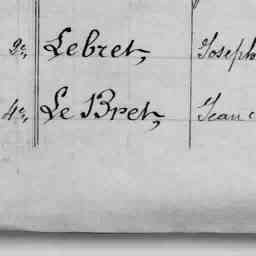 9e, Lebret, Joseph
4e, Le Bret, Jean